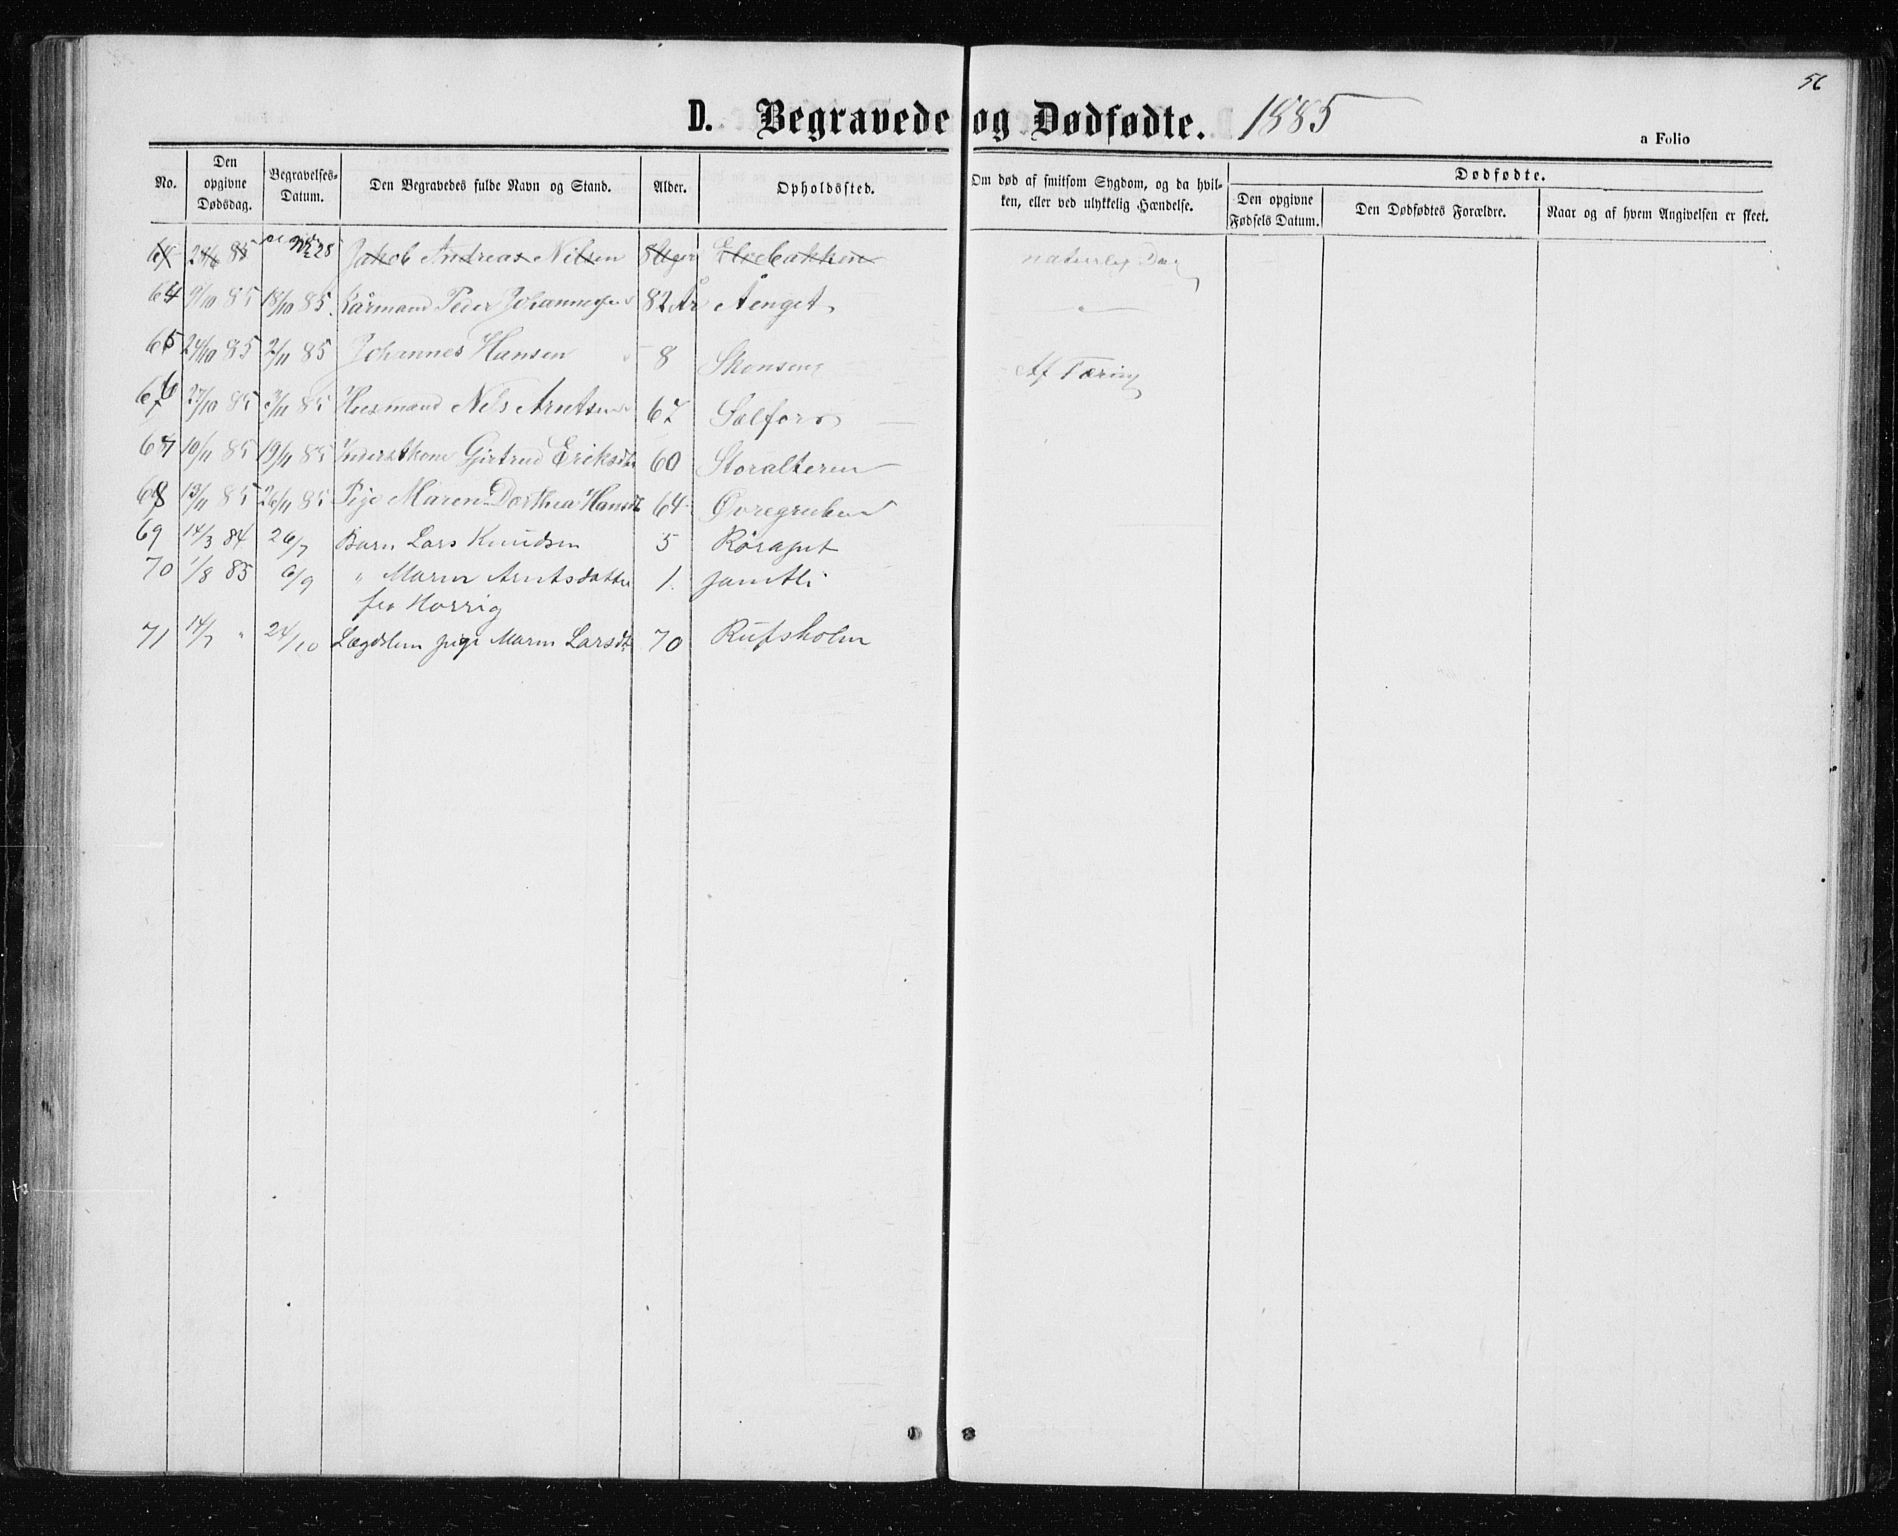 56
D. Begravede og Dødfødte. 1885
a Folio
No. Den opgivne Dødsdag. Begravelses-Datum. Den Begravedes fulde Navn og Stand. Alder. Opholdssted. Om død af smitsom Sygdom, og da hvilken, eller ved ulykkelig Hændelse. Dødfødte. Den opgivne Fødsels Datum. Den Dødfødtes Forældre. Naar og af hvem Angivelsen er skeet.
24/6 85 28 Jakob Andreas Nilsen Elvebakken naturlig
64 9/10 85 18/10 85 Kårmand Peder Johannesen 82 År Åenget "
65 24/10 85 2/11 85 Johannes Hansen 8 Skonseng Af Tæring
66 27/10 85 3/11 85 Husmand Nils Arntsen 67 Salfors
67 10/11 85 19/11 85 Inderstkone Gjertrud Eriksdtr 60 Storalteren
68 13/11 85 26/11 85 Pige Maren Dorthea Hansdt 64 Øvregruben
69 14/3 84 26/7 Barn Lars Knudsen 5 Røraget
70 1/8 85 6/9 " Maren Arntsdatter 1. Jamtli
fra
71 14/7 " 24/10 Lægdslem pige Maren Larsdt 70 Rufsholm